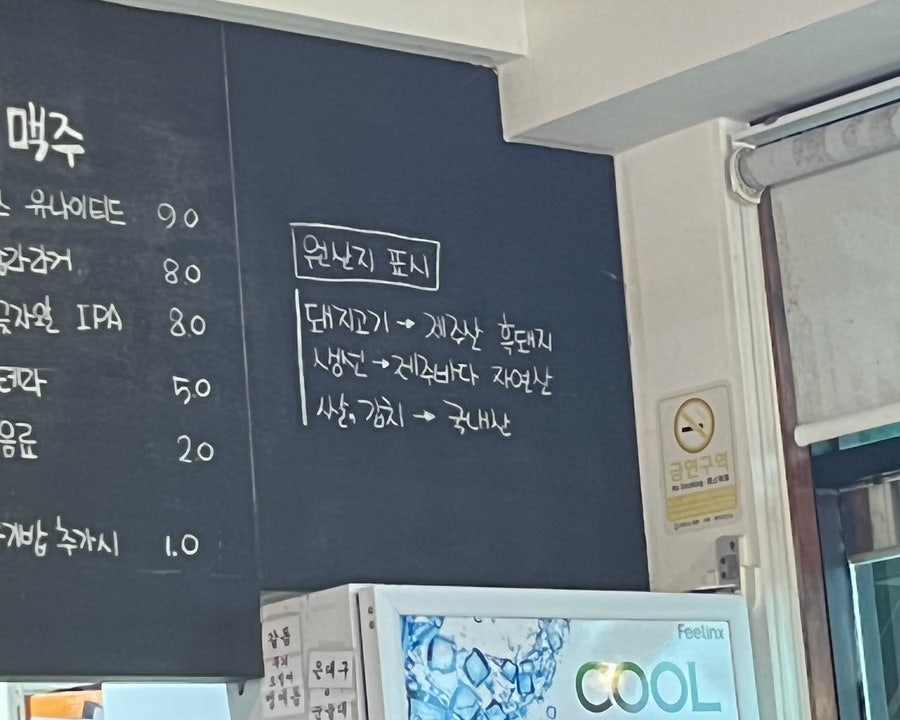 맥주
유나이티드 9.0
8.0
IPA 8.0
테라 5.0
음료 2.0
추가시 1.0
원산지 표시
돼지고기 → 제주산 흑돼지
생선 → 제주바다 자연산
쌀, 김치 → 국내산
금연구역
No Smoking
Feelinx
COOL